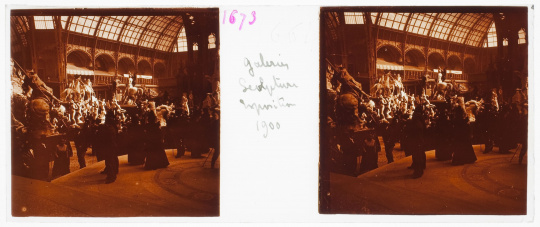 1673
Galeries
Sculpture
Exposition
1900